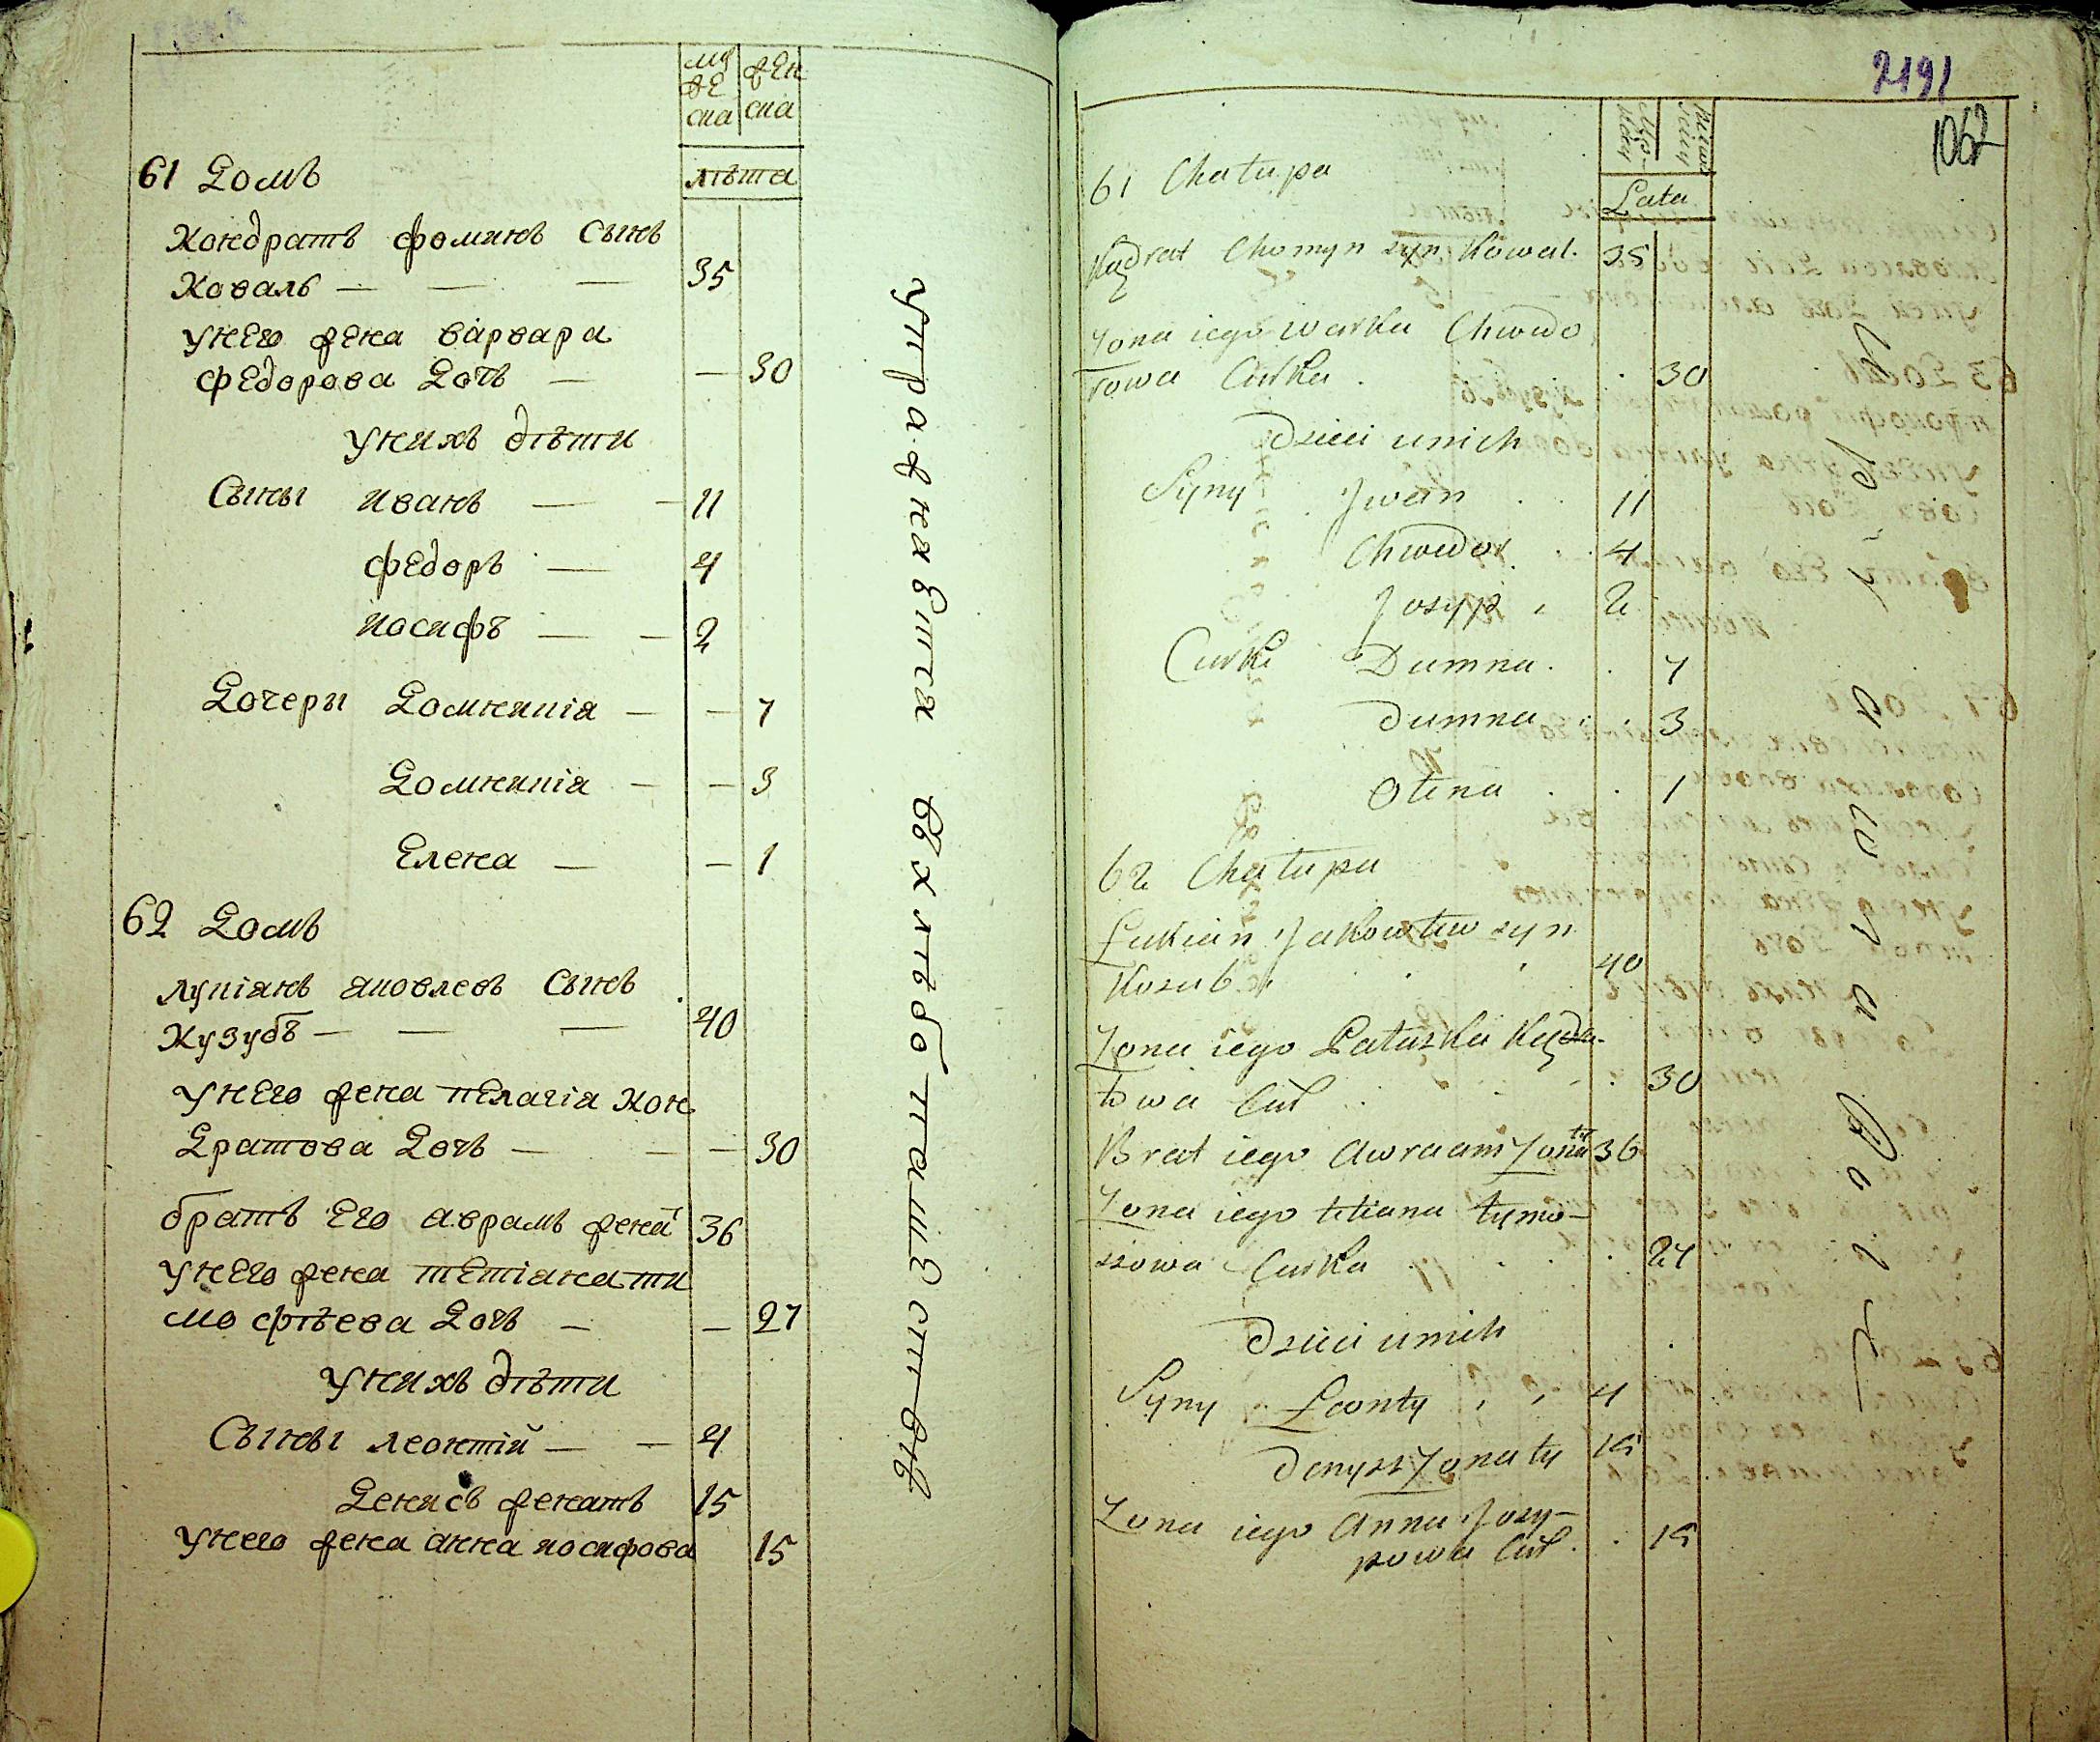 муже
ска
жен
ска
лѣта
61 Домъ
Кондратъ Фоминъ Сынъ
Коваль — — — 35
у него жена варвара
Федорова Дочь — — 30
у нихъ дѣти
Сыны иванъ — — 11
Федоръ — 4
иосифъ — — 2
Дочери Домникія — — 7
Домникія — — 3
Елена — — 1
62 Домъ
лукіанъ яковлевъ Сынъ
Кузубъ — — — 40
у него жена пелагіа Кон
Дратова Дочь — — — 30
братъ Его аврамъ женат 36
у него жена тетіана ти
мофѣева Дочь — — 27
у нихъ дѣти
Сыны леонтій — — 4
Денисъ женатъ 15
у него жена анна иосифова 15
упражняется въ хлѣбопашествѣ
2191
1062
Lata
61 Chałupa
Kądrat Chomyn syn Kowal. 35
Zona iego Warka Chwedo
rowa Curka . . 30
Dzieci u nich
Syny Jwan . . 11
Chwedor . . 4
Josyp , 2
Curki Dumna . . 7
Dumna . . 3
Olena . . 1
62 Chałupa
Łukian Jakowliw syn
Kozub . . 40
Zona iego Palaszka Kądra-
towa Cur . . 30
Brat iego Awraam Zonaty 36
Zona iego tetiana tymo-
szowa Curka . . 27
Dzieci u nich
Syny Leonty , , 4
Denysz Zonaty 15
Zona iego Anna Josy-
powa Cur. . 15